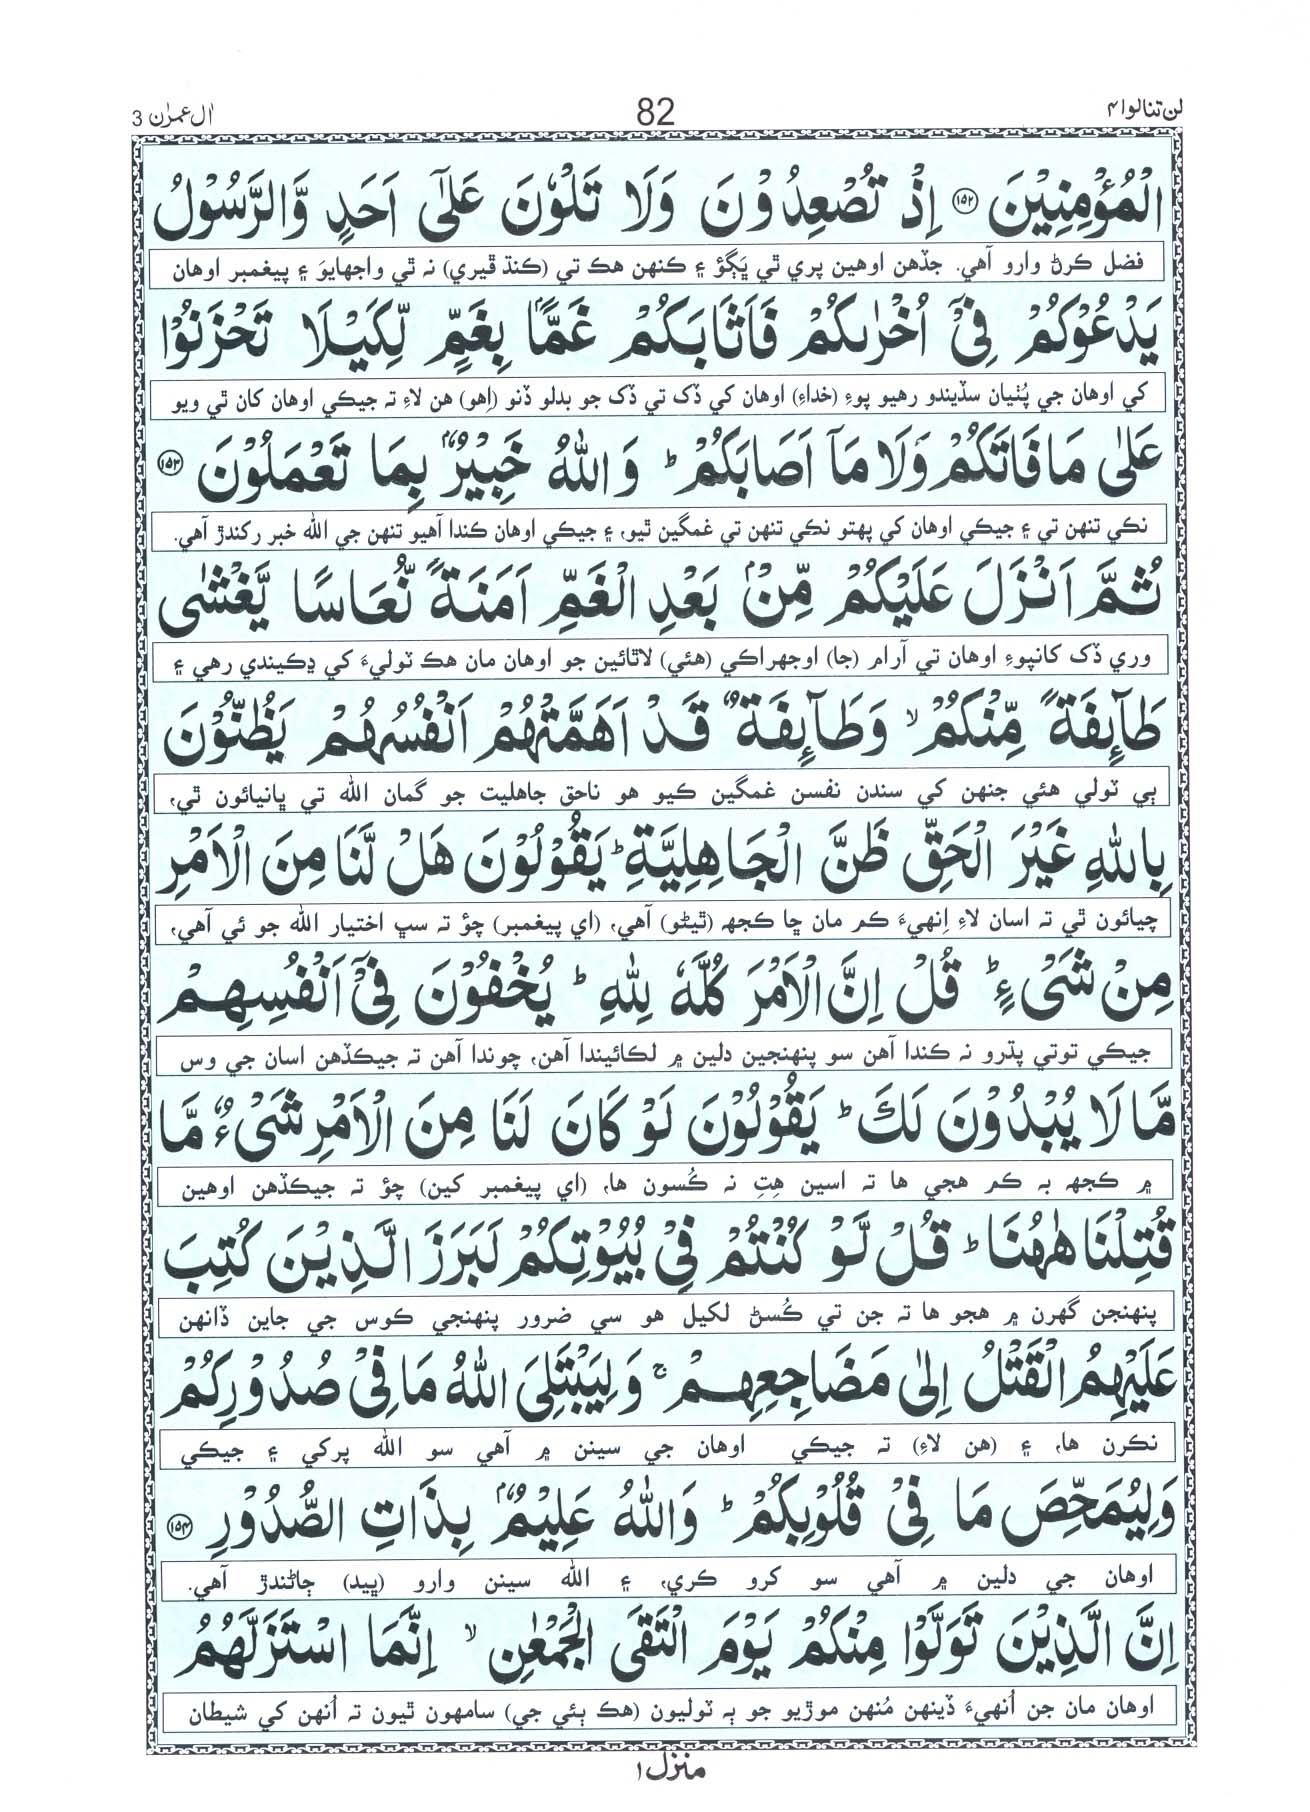 لن تنالوا ۴
82
اٰل عمرٰن 3
الْمُؤْمِنِيْنَ ﴿۱۵۲﴾ اِذْ تُصْعِدُوْنَ وَلَا تَلْوٗنَ عَلٰٓى اَحَدٍ وَّالرَّسُوْلُ
فضل ڪرڻ وارو آهي. جڏهن اوهين پري ٿي ڀَڳؤ ۽ ڪنهن هڪ تي (ڪنڌ ڦيري) نہ ٿي واجهايوَ ۽ پيغمبر اوهان
يَدْعُوْكُمْ فِيْٓ اُخْرٰىكُمْ فَاَثَابَكُمْ غَمًّۢا بِغَمٍّ لِّكَيْلَا تَحْزَنُوْا
کي اوهان جي پُٺيان سڏيندو رهيو پوءِ (خداءِ) اوهان کي ڏک تي ڏک جو بدلو ڏنو (اِهو) هن لاءِ تہ جيڪي اوهان کان ٿي ويو
عَلٰى مَا فَاتَكُمْ وَلَا مَآ اَصَابَكُمْ ؕ وَاللّٰهُ خَبِيْرٌۢ بِمَا تَعْمَلُوْنَ ﴿۱۵۳﴾
نڪي تنهن تي ۽ جيڪي اوهان کي پهتو نڪي تنهن تي غمگين ٿيو، ۽ جيڪي اوهان ڪندا آهيو تنهن جي الله خبر رکندڙ آهي.
ثُمَّ اَنْزَلَ عَلَيْكُمْ مِّنْۢ بَعْدِ الْغَمِّ اَمَنَةً نُّعَاسًا يَّغْشٰى
وري ڏک کانپوءِ اوهان تي آرام (جا) اوجهراڪي (هئي) لاٿائين جو اوهان مان هڪ ٽوليءَ کي ڍڪيندي رهي ۽
طَآىِٕفَةً مِّنْكُمْ ۙ وَطَآىِٕفَةٌ قَدْ اَهَمَّتْهُمْ اَنْفُسُهُمْ يَظُنُّوْنَ
ٻي ٽولي هئي جنهن کي سندن نفسن غمگين ڪيو هو ناحق جاهليت جو گمان الله تي ڀانيائون ٿي،
بِاللّٰهِ غَيْرَ الْحَقِّ ظَنَّ الْجَاهِلِيَّةِ ؕ يَقُوْلُوْنَ هَلْ لَّنَا مِنَ الْاَمْرِ
چيائون ٿي تہ اسان لاءِ اِنهيءَ ڪم مان ڇا ڪجهہ (ٿيڻو) آهي، (اي پيغمبر) چؤ تہ سڀ اختيار الله جو ئي آهي،
مِنْ شَيْءٍ ؕ قُلْ اِنَّ الْاَمْرَ كُلَّهٗ لِلّٰهِ ؕ يُخْفُوْنَ فِيْٓ اَنْفُسِهِمْ
جيڪي توتي پڌرو نہ ڪندا آهن سو پنهنجين دلين ۾ لڪائيندا آهن، چوندا آهن تہ جيڪڏهن اسان جي وس
مَّا لَا يُبْدُوْنَ لَكَ ؕ يَقُوْلُوْنَ لَوْ كَانَ لَنَا مِنَ الْاَمْرِ شَيْءٌ مَّا
۾ ڪجهہ بہ ڪم هجي ها تہ اسين هِتِ نہ ڪُسون ها، (اي پيغمبر کين) چؤ تہ جيڪڏهن اوهين
قُتِلْنَا هٰهُنَا ؕ قُلْ لَّوْ كُنْتُمْ فِيْ بُيُوْتِكُمْ لَبَرَزَ الَّذِيْنَ كُتِبَ
پنهنجن گهرن ۾ هجو ها تہ جن تي ڪُسڻ لکيل هو سي ضرور پنهنجي ڪوس جي جاين ڏانهن
عَلَيْهِمُ الْقَتْلُ اِلٰى مَضَاجِعِهِمْ ۚ وَلِيَبْتَلِيَ اللّٰهُ مَا فِيْ صُدُوْرِكُمْ
نڪرن ها، ۽ (هن لاءِ) تہ جيڪي اوهان جي سينن ۾ آهي سو الله پرکي ۽ جيڪي
وَلِيُمَحِّصَ مَا فِيْ قُلُوْبِكُمْ ؕ وَاللّٰهُ عَلِيْمٌۢ بِذَاتِ الصُّدُوْرِ ﴿۱۵۴﴾
اوهان جي دلين ۾ آهي سو کرو ڪري، ۽ الله سينن وارو (ڀيد) ڄاڻندڙ آهي.
اِنَّ الَّذِيْنَ تَوَلَّوْا مِنْكُمْ يَوْمَ الْتَقَى الْجَمْعٰنِ ۙ اِنَّمَا اسْتَزَلَّهُمُ
اوهان مان جن اُنهيءَ ڏينهن مُنهن موڙيو جو ٻہ ٽوليون (هڪ ٻئي جي) سامهون ٿيون تہ اُنهن کي شيطان
منزل ۱